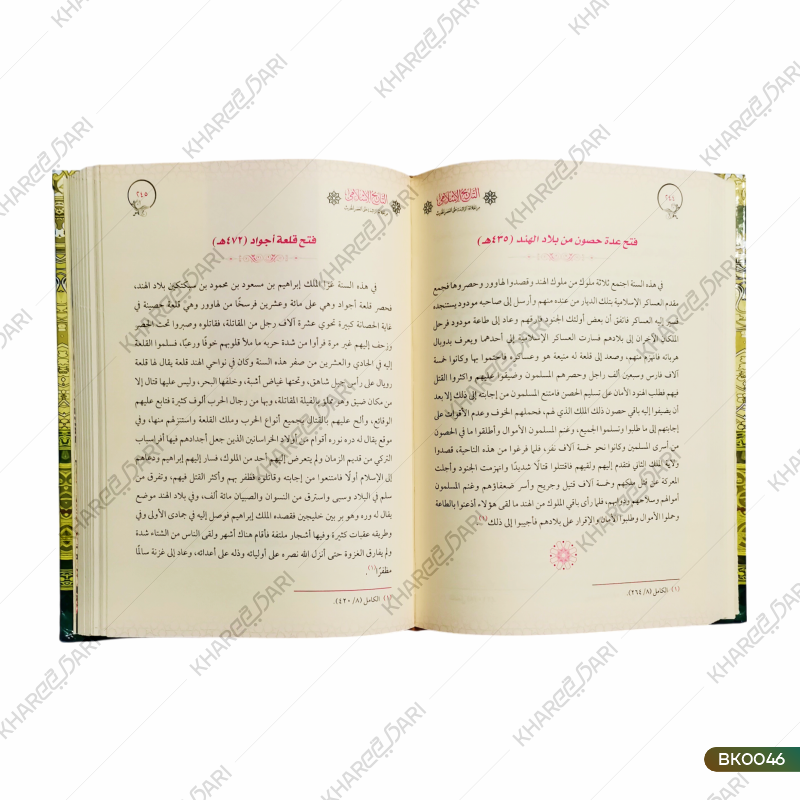 التاريخ الإسلامي
فتح عدة حصون من بلاد الهند (٤٣٥هـ)
في هذه السنة اجتمع ثلاثة ملوك من ملوك الهند وقصدوا لهاوور وحصروها فجمع
مقدم العساكر الإسلامية بتلك الديار من عنده منهم وأرسل إلى صاحبه مودود يستنجده
فسير إليه العساكر فاتفق أن بعض أولئك الجنود فارقهم وعاد إلى طاعة مودود فرحل
الملكان الآخران إلى بلادهم فسارت العساكر الإسلامية إلى أحدهما ويعرف بدوبال
هرباته فانهزم منهم، وصعد إلى قلعة له منيعة هو وعساكره فاحتموا بها وكانوا خمسة
آلاف فارس وسبعين ألف راجل وحصرهم المسلمون وضيقوا عليهم وأكثروا القتل
فيهم فطلب الهنود الأمان على تسليم الحصن فامتنع المسلمون من إجابته إلى ذلك إلا بعد
أن يضيفوا إليه باقي حصون ذلك الملك الذي لهم، فحملهم الخوف وعدم الأقوات على
إجابتهم إلى ما طلبوا وتسلموا الجميع، وغنم المسلمون الأموال وأطلقوا ما في الحصون
من أسرى المسلمين وكانوا نحو خمسة آلاف نفر، فلما فرغوا من هذه الناحية، قصدوا
ولاية الملك الثاني فتقدم إليهم ولقيهم فاقتتلوا قتالًا شديدًا وانهزمت الجنود وأجلت
المعركة عن قتل ملكهم وخمسة آلاف قتيل وجريح وأسر ضعفاؤهم وغنم المسلمون
أموالهم وسلاحهم ودوابهم، فلما رأى باقي الملوك من الهند ما لقى هؤلاء أذعنوا بالطاعة
وحملوا الأموال وطلبوا الأمان والإقرار على بلادهم فأجيبوا إلى ذلك (١)
(١) الكامل (٨/ ٢٦٤).
٢٤٥
التاريخ الإسلامي
فتح قلعة أجواد (٤٧٢هـ)
في هذه السنة غزا الملك إبراهيم بن مسعود بن محمود بن سبكتكين بلاد الهند،
فحصر قلعة أجواد وهي على مائة وعشرين فرسخًا من لهاوور وهي قلعة حصينة في
غاية الحصانة كبيرة تحوي عشرة آلاف رجل من المقاتلة، فقاتلوه وصبروا تحت الحصر
وزحف إليهم غير مرة فرأوا من شدة حربه ما ملأ قلوبهم خوفًا ورعبًا، فسلموا القلعة
إليه في الحادي والعشرين من صفر هذه السنة وكان في نواحي الهند قلعة يقال لها قلعة
روبال على رأس جبل شاهق، وتحتها غياض أشبة، وخلفها البحر، وليس عليها قتال إلا
من مكان ضيق وهو مملؤ بالفيلة المقاتلة، وبها من رجال الحرب ألوف كثيرة فتابع عليهم
الوقائع، وألح عليهم بالقتال بجميع أنواع الحرب وملك القلعة واستنزلهم منها، وفي
موقع يقال له دره نوره أقوام من أولاد الخراسانين الذين جعل أجدادهم فيها أفراسياب
التركي من قديم الزمان ولم يتعرض إليهم أحد من الملوك، فسار إليهم إبراهيم ودعاهم
إلى الإسلام أولًا فامتنعوا من إجابته وقاتلوه فظفر بهم وأكثر القتل فيهم، وتفرق من
سلم في البلاد وسبى واسترق من النسوان والصبيان مائة ألف، وفي بلاد الهند موضع
يقال له وره وهو بر بين خليجين فقصده الملك إبراهيم فوصل إليه في جمادى الأولى وفي
وطريقه عقبات كثيرة وفيها أشجار ملتفة فأقام هناك أشهر ولقى الناس من الشتاء شدة
ولم يفارق الغزوة حتى أنزل الله نصره على أوليائه وذله على أعدائه، وعاد إلى غزنة سالمًا
مظفرًا(١).
(١) الكامل (٨/ ٤٢٠).
BK0046